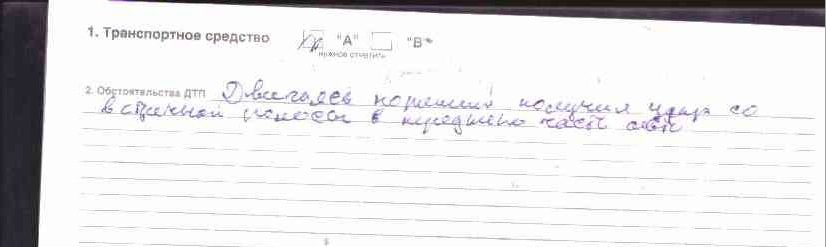 1. Транспортное средство "А" "В"*
нужное отметить
2. Обстоятельства ДТП Двигаясь получил удар со
встречной полосы в переднюю часть